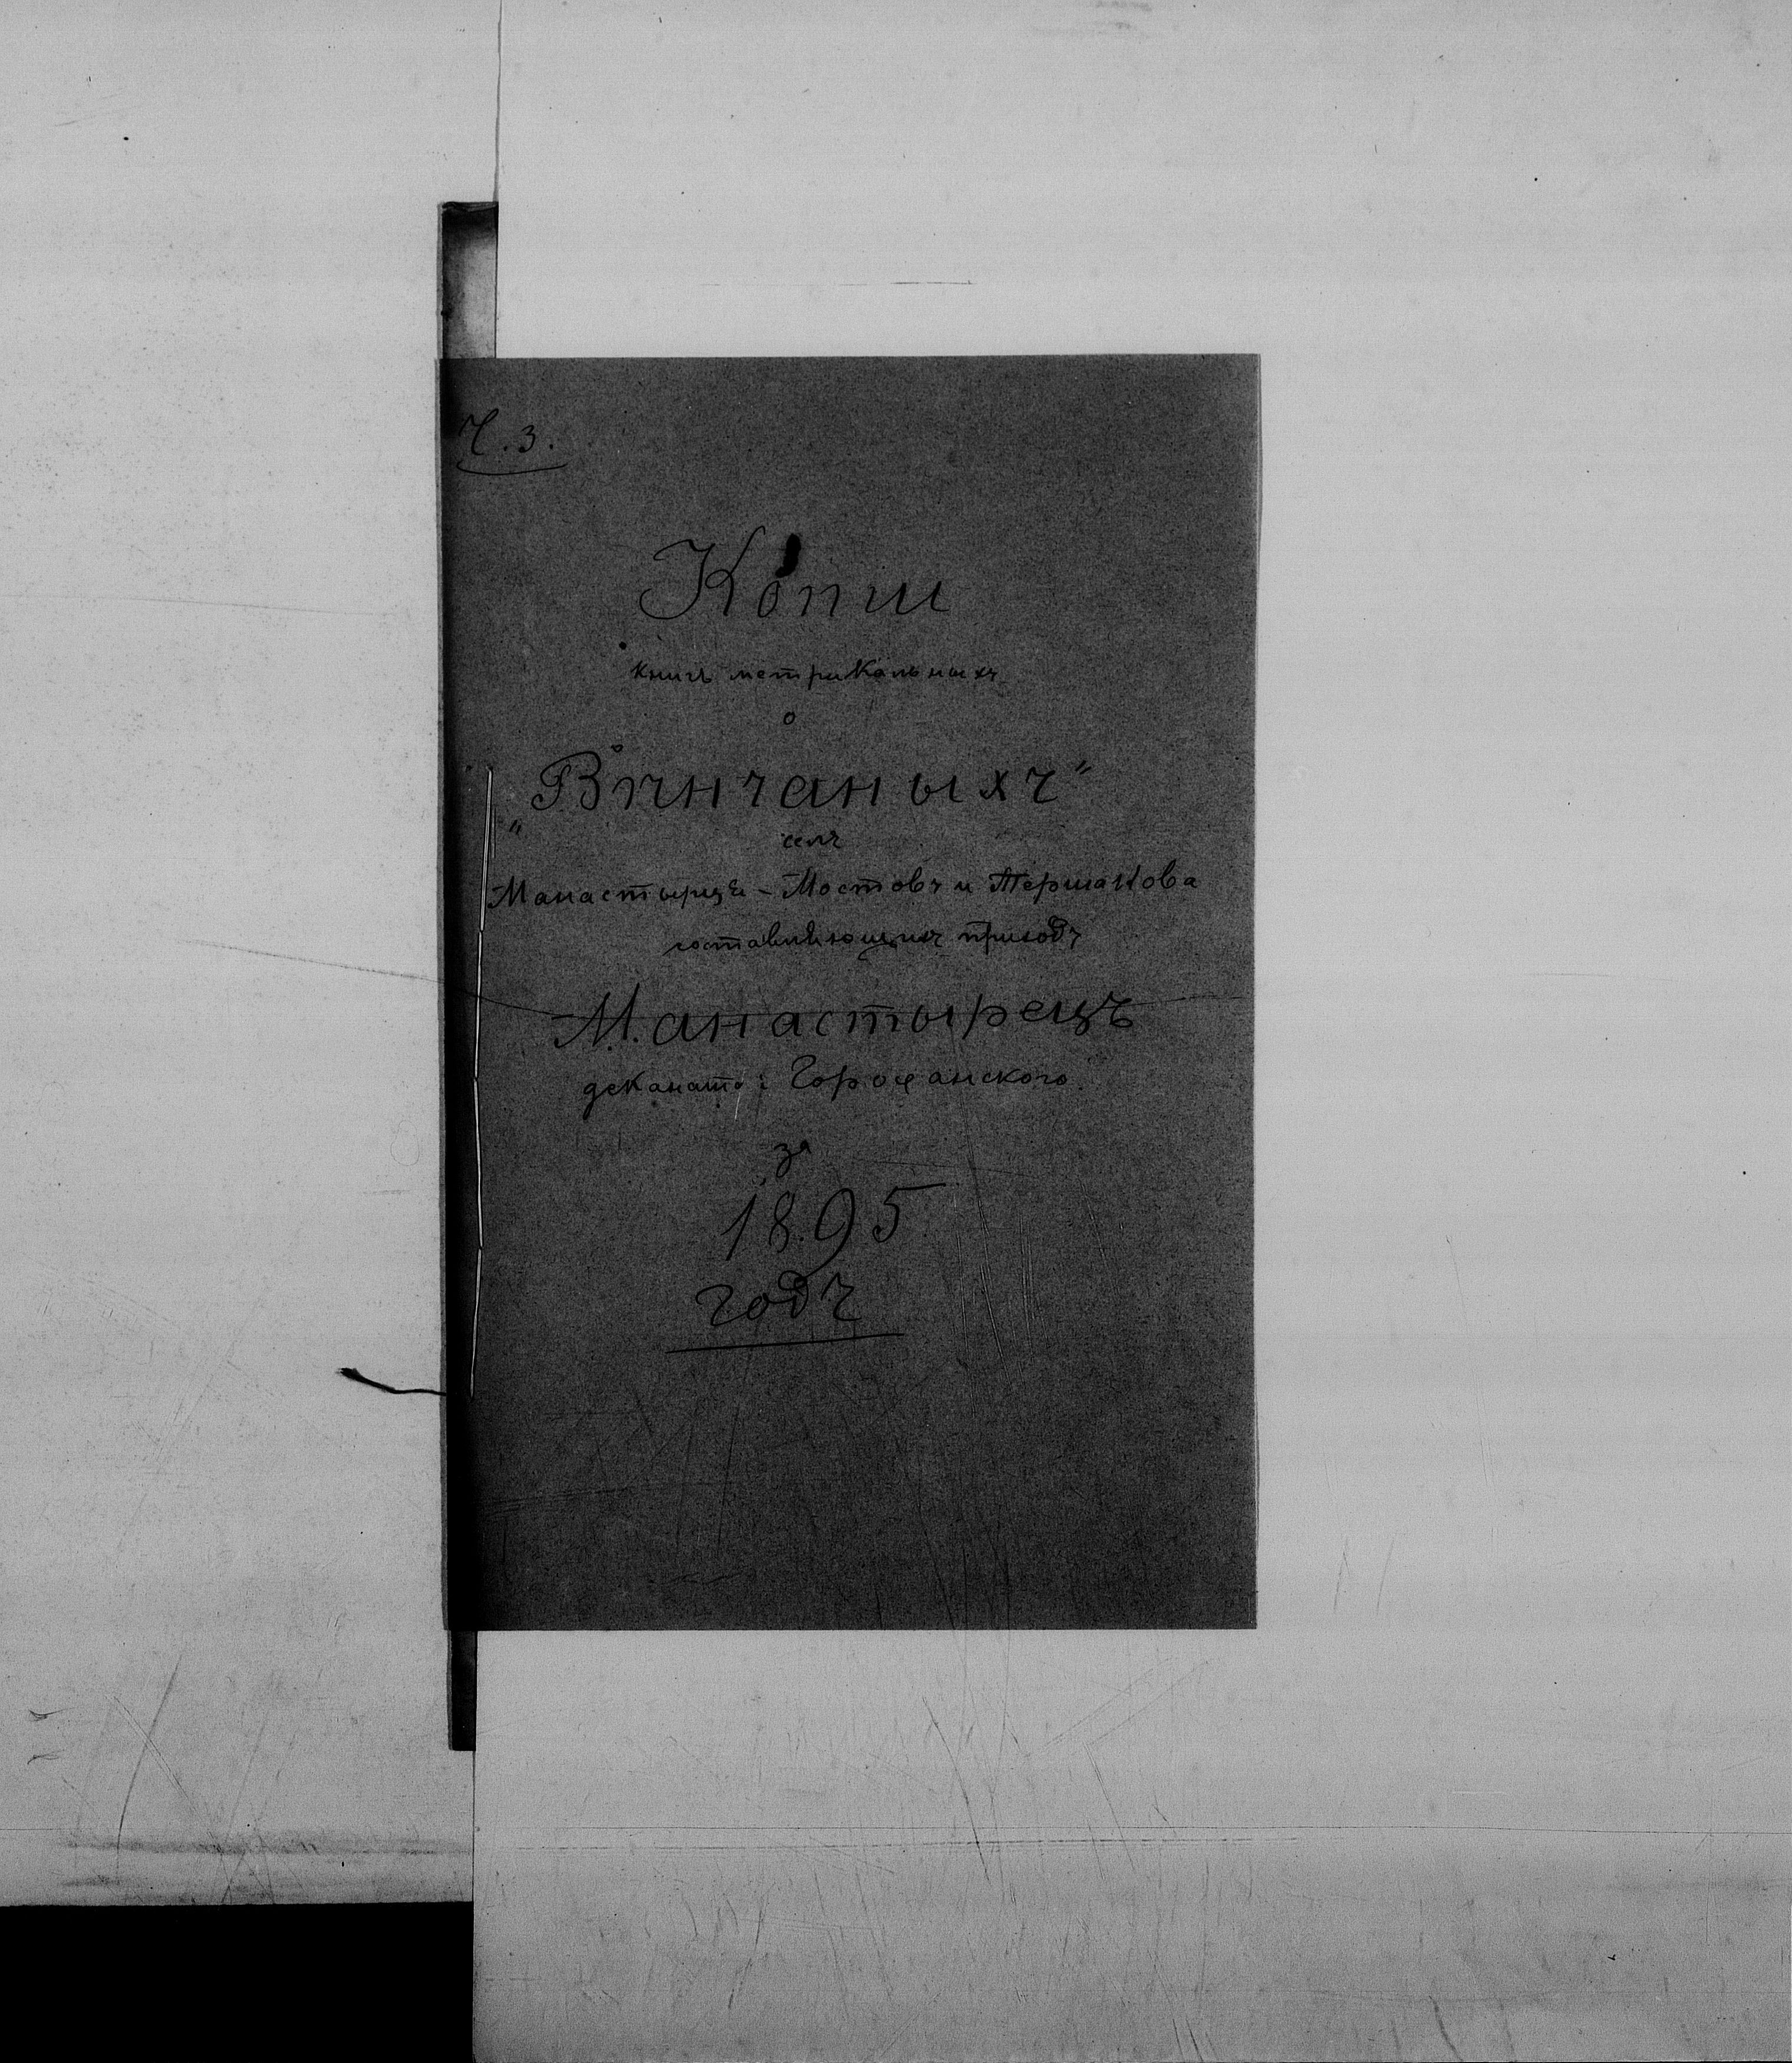 Ч. 3.
Копіи
книгъ метрикальныхъ
о
„Вѣнчаныхъ"
селъ
Манастырцѣ - Мостовъ и Тершакова
составляющихъ приходъ
Манастырецъ
деканата: Горожанского
за
1895
годъ